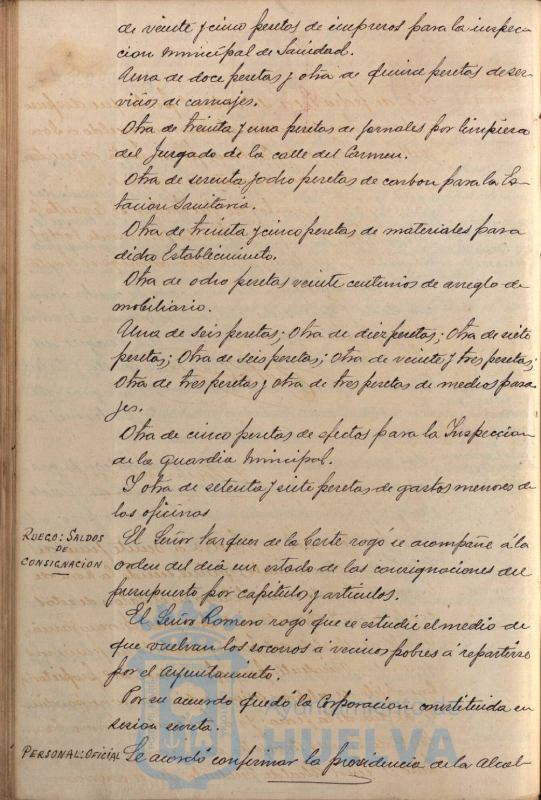 de veinte y cinco pesetas de impresos para la inspec-
cion municipal de Sanidad.
Una de doce pesetas y otra de quince pesetas de ser-
vicios de carruajes.
Otra de treinta y una pesetas de jornales por limpieza
del Juzgado de la calle del Carmen.
Otra de sesenta y ocho pesetas de carbon para la Es-
tacion Sanitaria.
Otra de treinta y cinco pesetas de materiales para
dicho Establecimiento.
Otra de ocho pesetas veinte centimos de arreglo de
mobiliario.
Una de seis pesetas; Otra de diez pesetas; Otra de siete
pesetas; Otra de seis pesetas; Otra de veinte y tres pesetas;
Otra de tres pesetas y otra de tres pesetas de medios pasa-
jes.
Otra de cinco pesetas de efectos para la Inspeccion
de la Guardia Municipal.
Y otra de setenta y siete pesetas de gastos menores de
las oficinas
RUEGO: SALDOS
DE
CONSIGNACION
El Señor Vazquez de la Corte rogó se acompañe á la
orden del dia un estado de las consignaciones del
presupuesto por capitulos y articulos.
El Señor Romero rogó que se estudie el medio de
que vuelvan los socorros á vecinos pobres á repartirse
por el Ayuntamiento.
Por su acuerdo quedó la Corporacion constituida en
sesion secreta.
PERSONAL: OFICIAL
Se acordó confirmar la providencia de la Alcal-
HUELVA